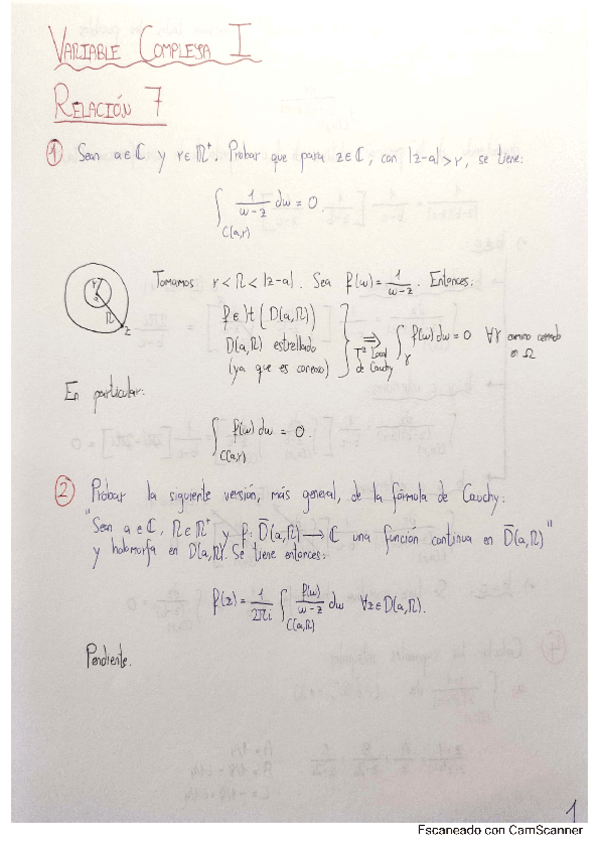 VARIABLE COMPLEJA I
RELACIÓN 7
① Sean a∈ℂ y r∈ℝ⁺. Probar que para z∈ℂ, con |z-a|>r, se tiene:
∫_{C(a,r)} 1/(w-z) dw = 0
Tomamos r < R < |z-a|. Sea f(w) = 1/(w-z). Entonces:
f ∈ H(D(a,R))
D(a,R) estrellado
(ya que es convexo)
⟹ T^a Local de Cauchy
∫_γ f(w) dw = 0 ∀γ camino cerrado en Ω
r
a
R
z
En particular:
∫_{C(a,r)} f(w) dw = 0.
② Probar la siguiente versión, más general, de la fórmula de Cauchy:
"Sean a∈ℂ, R∈ℝ⁺ y f: D̄(a,R) → ℂ una función continua en D̄(a,R)"
y holomorfa en D(a,R). Se tiene entonces:
f(z) = 1/(2πi) ∫_{C(a,R)} f(w)/(w-z) dw ∀z∈D(a,R).
Pendiente.
1
Escaneado con CamScanner